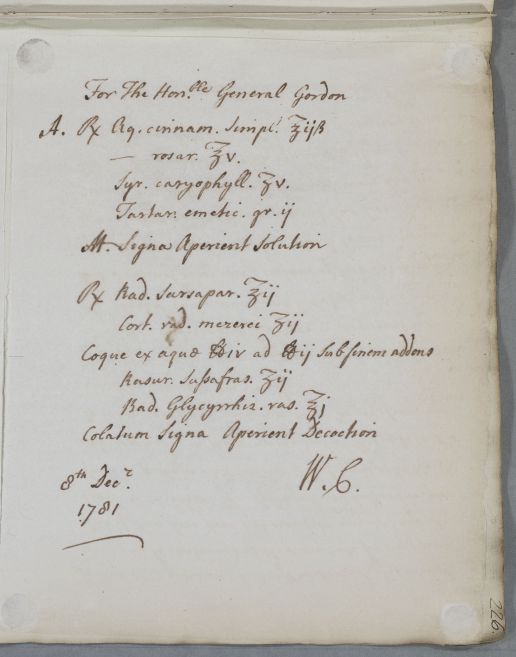 For The Hon.ble General Gordon
A. ℞ Aq. cinnam. simpl. ℥ijß
— rosar. ℥v.
Syr. caryophyll. ʒv.
Tartar. emetic. gr. ij
M. Signa Aperient Solution
℞ Rad. Sarsapar. ℥ij
Cort. rad. mezerei ʒij
Coque ex aquæ ℔iv ad ℔ij sub finem addens
Rasur. Sassafras. ʒij
Rad. Glycyrrhiz. ras. ℥j
Colatum Signa Aperient Decoction
W. C.
8th Decr.
1781
226